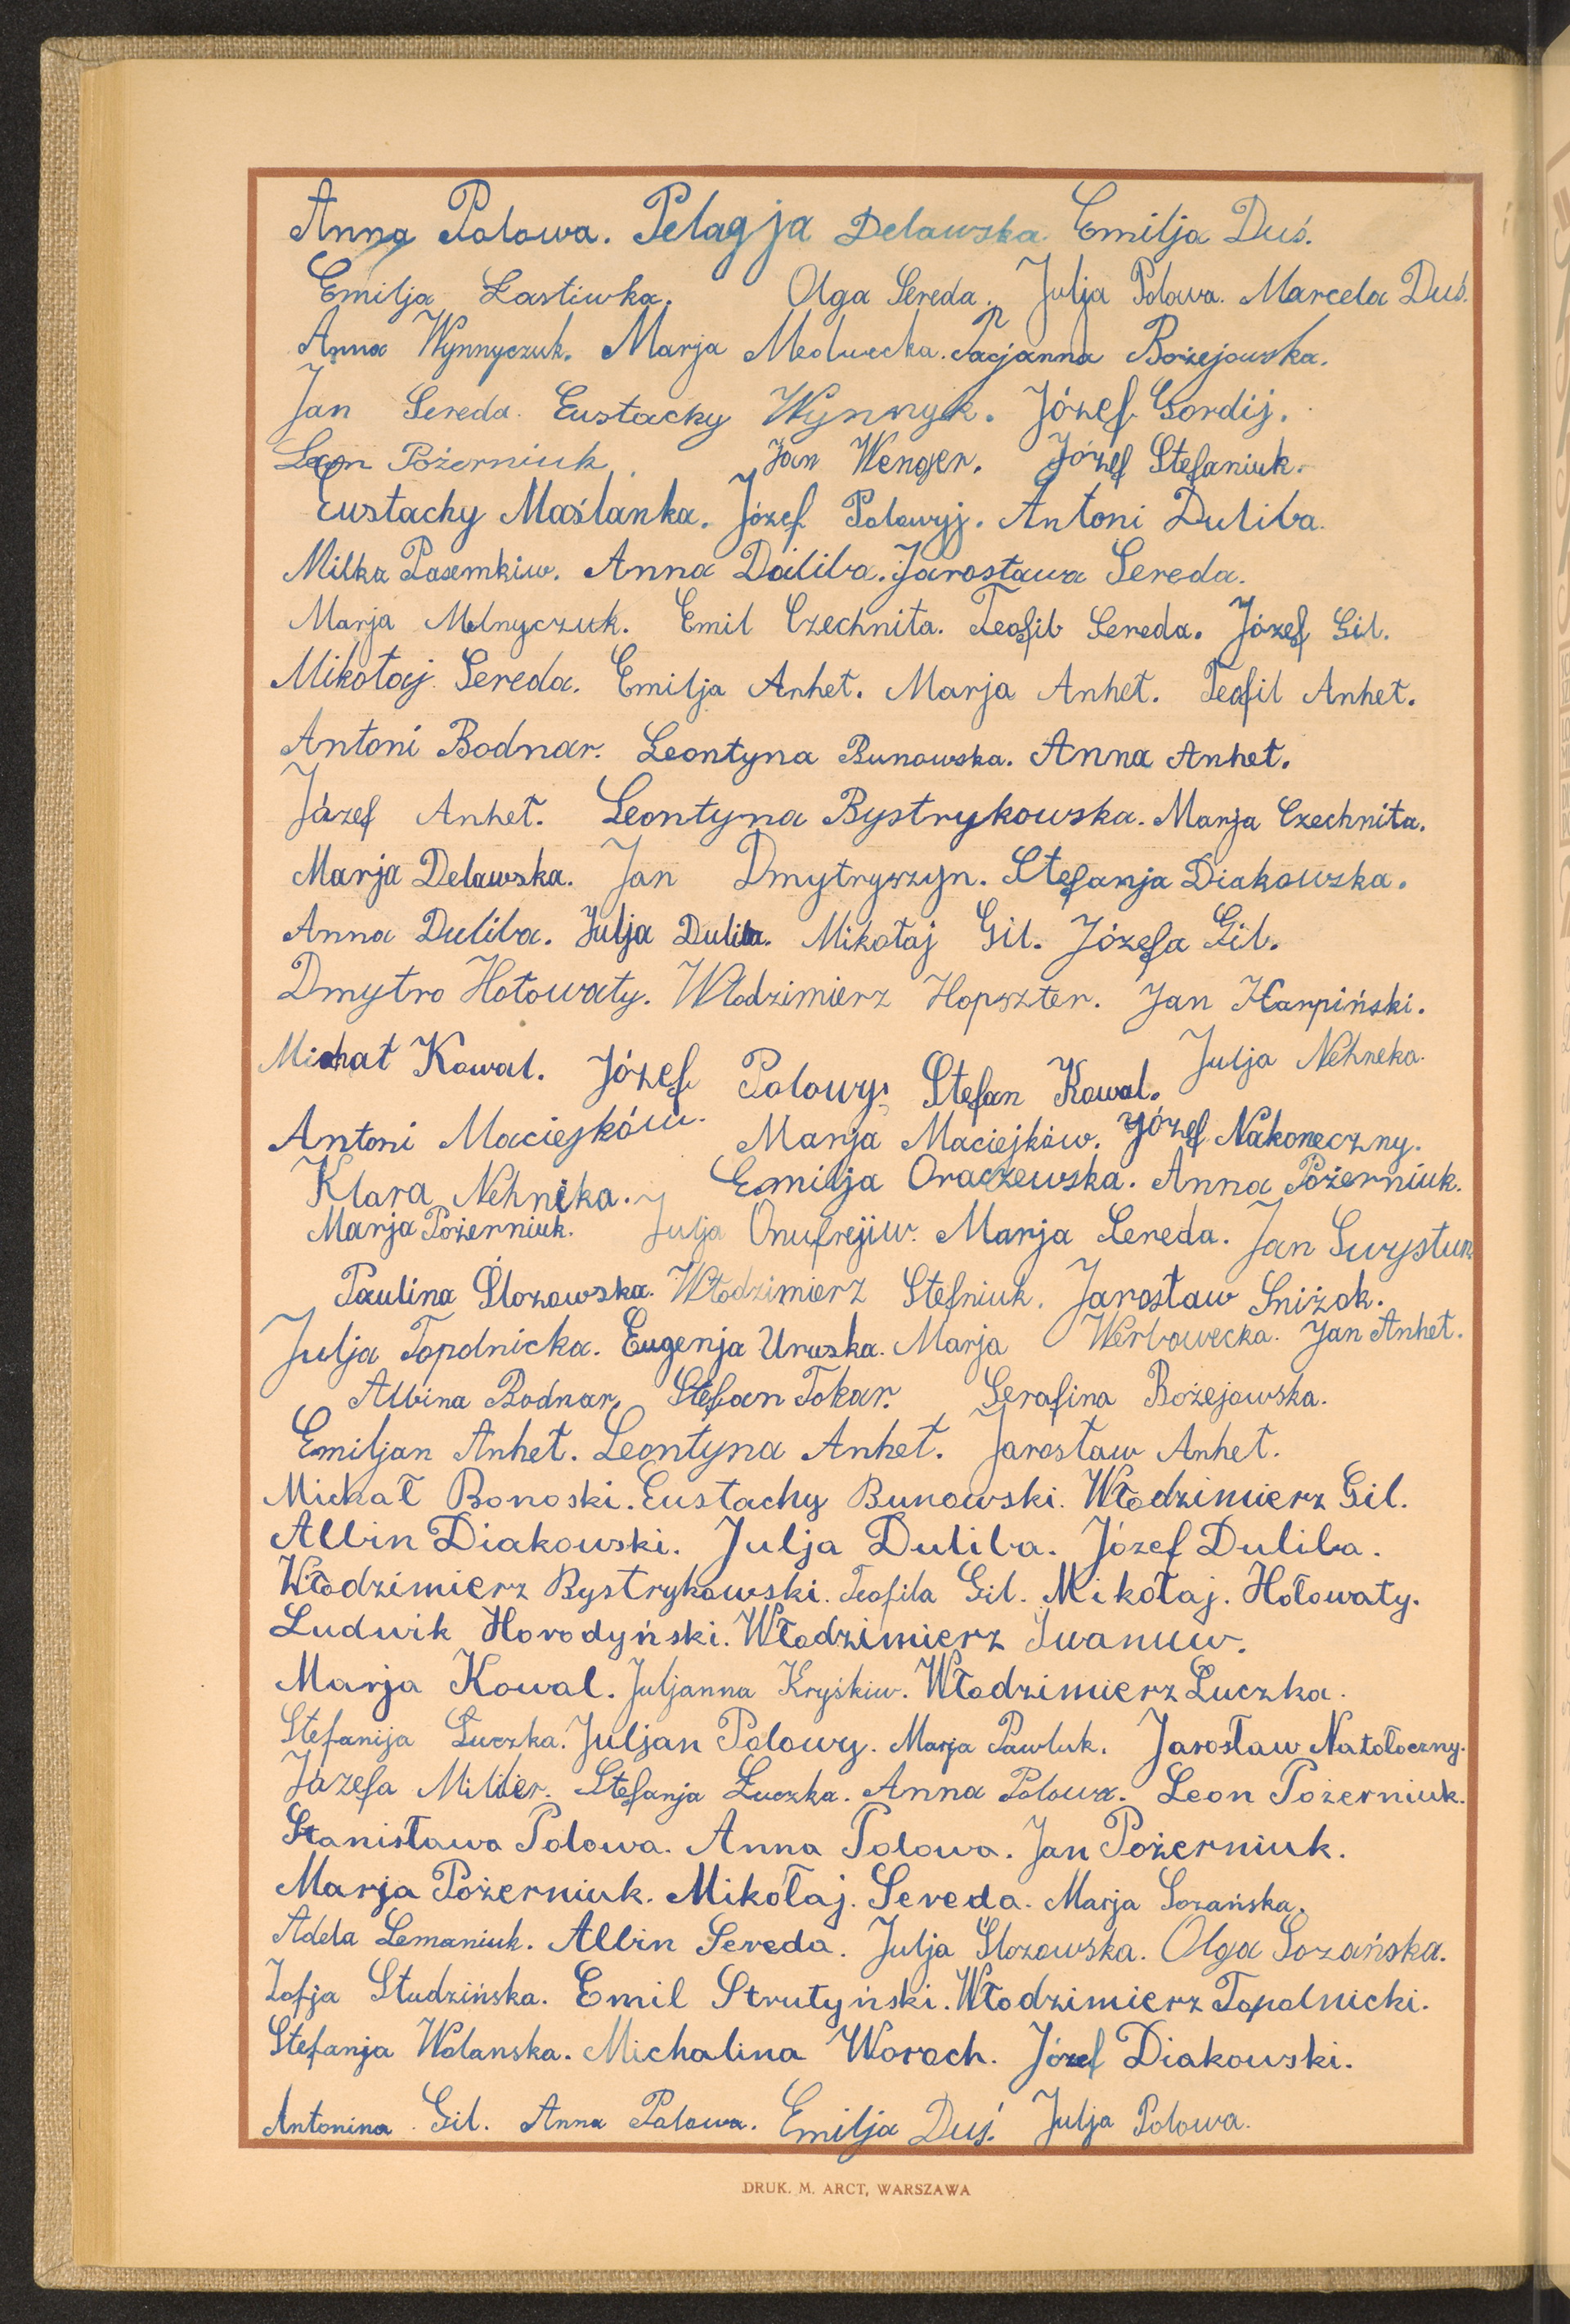 Anna Polowa. Pelagja Delawska Emilja Duś.
Emilja Łastiwka. Olga Sereda. Julja Polowa. Marcela Duś.
Anna Wynnyczuk. Marja Medwecka. Parjanna Bożejowska.
Jan Sereda. Eustachy Wynnyk. Józef Gordij.
Leon Pożerniuk. Jan Wenger. Józef Stefaniuk.
Eustachy Maślanka. Józef Polowyj. Antoni Duliba.
Milka Pasemkiw. Anna Duliba. Jarosława Sereda.
Marja Melnyczuk. Emil Czechnita. Teofil Sereda. Józef Gil.
Mikołaj Sereda. Emilja Anhet. Marja Anhet. Teofil Anhet.
Antoni Bodnar. Leontyna Bunowska. Anna Anhet.
Józef Anhet. Leontyna Bystrykowska. Marja Czechnita.
Marja Delawska. Jan Dmytryszyn. Stefanja Diakowska.
Anna Duliba. Julja Duliba. Mikołaj Gil. Józefa Gil.
Dmytro Hołowaty. Włodzimierz Hopszter. Jan Karpiński.
Michał Kowal. Józef Polowy. Stefan Kowal. Julja Nehneka.
Antoni Maciejków. Marja Maciejków. Józef Nakoneczny.
Klara Nehnika. Emilja Oraczewska. Anna Pożerniuk.
Marja Pożerniuk. Julja Onufrejiw. Marja Sereda. Jan Swystun
Paulina Słozowska. Włodzimierz Stefniuk. Jarosław Sniżok.
Julja Topolnicka. Eugenja Uruska. Marja Werbowecka. Jan Anhet.
Albina Bodnar. Stefan Tokar. Serafina Bożejowska.
Emiljan Anhet. Leontyna Anhet. Jarosław Anhet.
Michał Bonoski. Eustachy Bunowski. Włodzimierz Gil.
Albin Diakowski. Julja Duliba. Józef Duliba.
Włodzimierz Bystrykowski. Teofila Gil. Mikołaj. Hołowaty.
Ludwik Horodyński. Włodzimierz Iwanuw.
Marja Kowal. Juljanna Kryśkiw. Włodzimierz Łuczka.
Stefanija Łuczka. Juljan Polowy. Marja Pawluk. Jarosław Natołoczny.
Józefa Miller. Stefanja Łuczka. Anna Polowa. Leon Pożerniuk.
Stanisława Polowa. Anna Polowa. Jan Pożerniuk.
Marja Pożerniuk. Mikołaj. Sereda. Marja Sozańska.
Adela Semaniuk. Albin Sereda. Julja Słozowska. Olga Sozańska.
Zofja Studzińska. Emil Strutyński. Włodzimierz Topolnicki.
Stefanja Wolanska. Michalina Woroch. Józef Diakowski.
Antonina Gil. Anna Polowa. Emilja Duś. Julja Polowa.
DRUK. M. ARCT, WARSZAWA